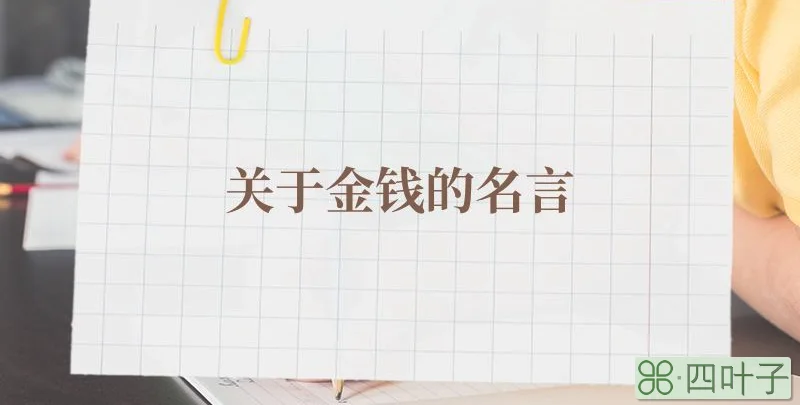 关于金钱的名言
四叶子